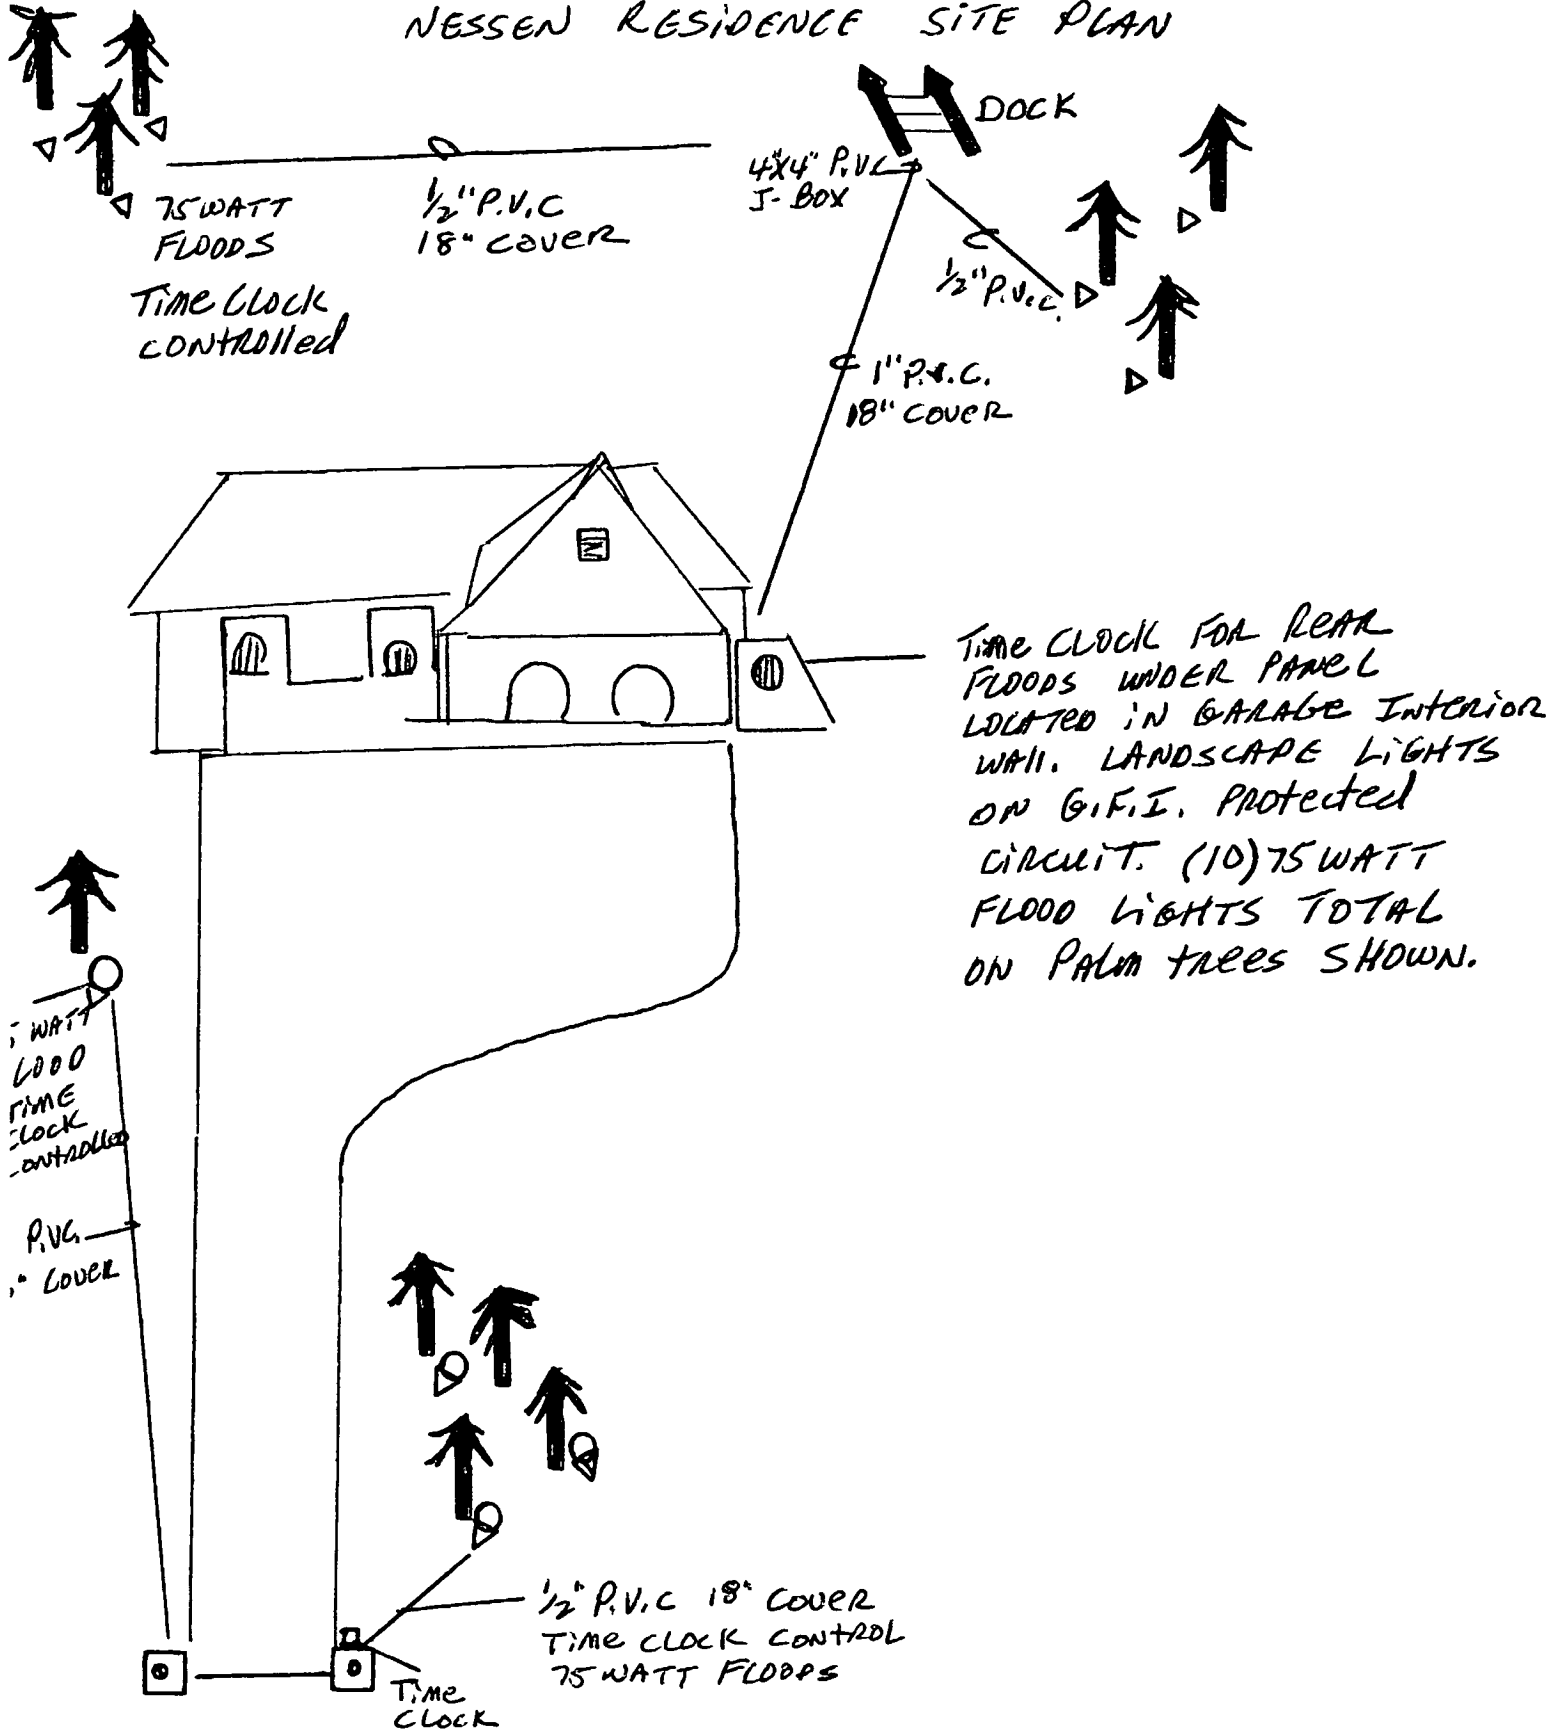 NESSEN RESIDENCE SITE PLAN
DOCK
4"X4" P.V.C
J-BOX
75 WATT
FLOODS
TIME CLOCK
CONTROLLED
1/2" P.V.C
18" COVER
1/2" P.V.C.
1" P.V.C.
18" COVER
TIME CLOCK FOR REAR
FLOODS UNDER PANEL
LOCATED IN GARAGE INTERIOR
WALL. LANDSCAPE LIGHTS
ON G.F.I. PROTECTED
CIRCUIT. (10) 75 WATT
FLOOD LIGHTS TOTAL
ON PALM TREES SHOWN.
WATT
LOOD
TIME
CLOCK
CONTROLLED
P.VC.
" COVER
1/2" P.V.C 18" COVER
TIME CLOCK CONTROL
75 WATT FLOODS
TIME
CLOCK